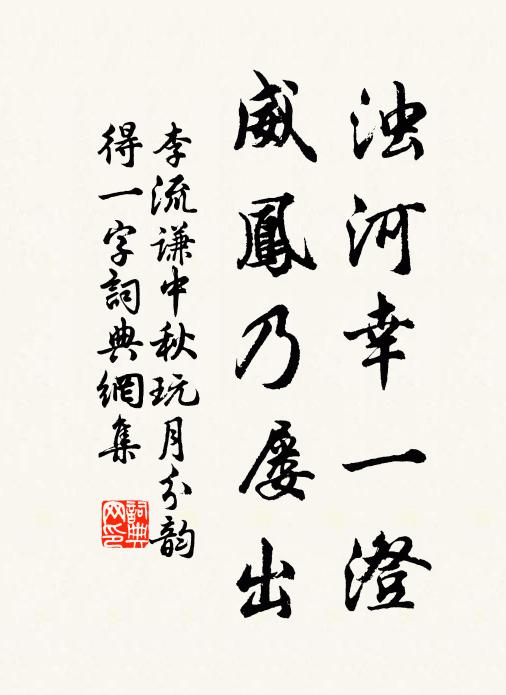 浊河幸一澄
威鳳乃屡出
李流謙中秋玩月分韵
得一字詞典網集
詞典
网印